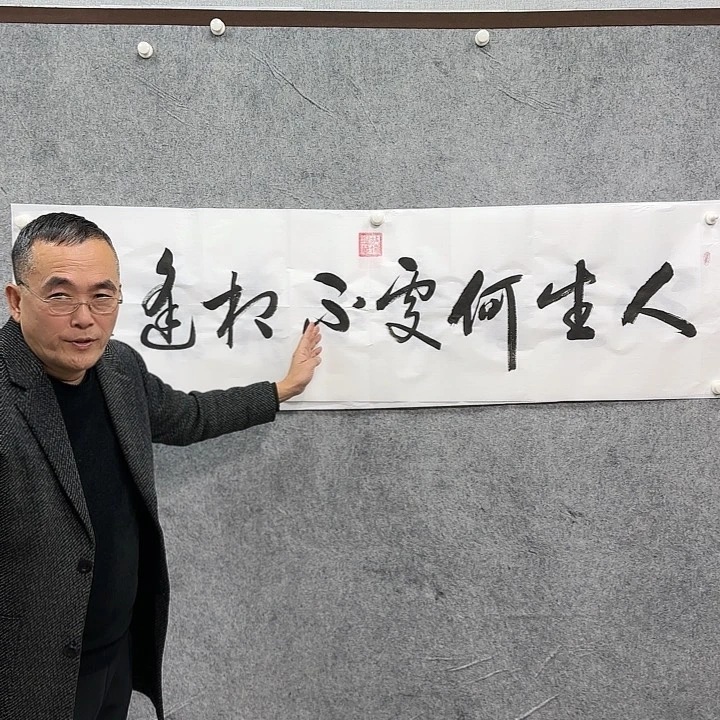 人生何處不相逢